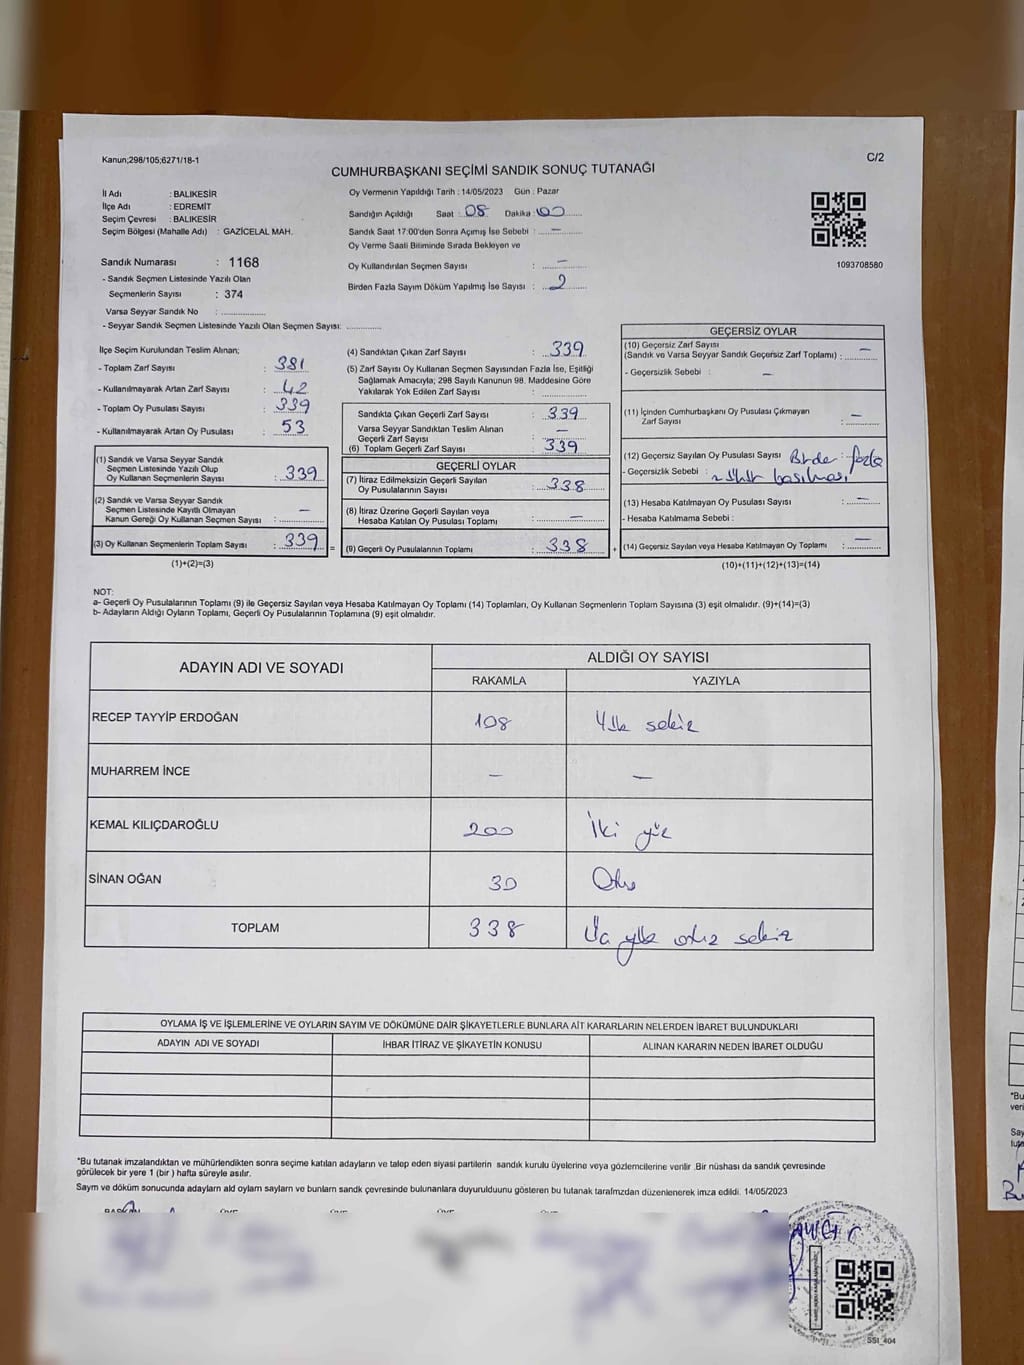 Kanun;298/105;6271/18-1
C/2
CUMHURBAŞKANI SEÇİMİ SANDIK SONUÇ TUTANAĞI
İl Adı : BALIKESİR
İlçe Adı : EDREMİT
Seçim Çevresi : BALIKESİR
Seçim Bölgesi (Mahalle Adı) : GAZİCELAL MAH.
Sandık Numarası : 1168
- Sandık Seçmen Listesinde Yazılı Olan
Seçmenlerin Sayısı : 374
Varsa Seyyar Sandık No : ..............
- Seyyar Sandık Seçmen Listesinde Yazılı Olan Seçmen Sayısı: ............
Oy Vermenin Yapıldığı Tarih : 14/05/2023 Gün : Pazar
Sandığın Açıldığı Saat : 08 Dakika : 00
Sandık Saat 17:00'den Sonra Açımış İse Sebebi : —
Oy Verme Saati Bitiminde Sırada Bekleyen ve
Oy Kullandırılan Seçmen Sayısı : —
Birden Fazla Sayım Döküm Yapılmış İse Sayısı : 2
1093708580
İlçe Seçim Kurulundan Teslim Alınan;
- Toplam Zarf Sayısı : 381
- Kullanılmayarak Artan Zarf Sayısı : 42
- Toplam Oy Pusulası Sayısı : 339
- Kullanılmayarak Artan Oy Pusulası : 53
(1) Sandık ve Varsa Seyyar Sandık
Seçmen Listesinde Yazılı Olup
Oy Kullanan Seçmenlerin Sayısı : 339
(2) Sandık ve Varsa Seyyar Sandık
Seçmen Listesinde Kayıtlı Olmayan
Kanun Gereği Oy Kullanan Seçmen Sayısı : —
(3) Oy Kullanan Seçmenlerin Toplam Sayısı : 339 =
(1)+(2)=(3)
(4) Sandıktan Çıkan Zarf Sayısı : 339
(5) Zarf Sayısı Oy Kullanan Seçmen Sayısından Fazla İse, Eşitliği
Sağlamak Amacıyla; 298 Sayılı Kanunun 98. Maddesine Göre
Yakılarak Yok Edilen Zarf Sayısı : ..............
Sandıkta Çıkan Geçerli Zarf Sayısı : 339
Varsa Seyyar Sandıktan Teslim Alınan
Geçerli Zarf Sayısı : —
(6) Toplam Geçerli Zarf Sayısı : 339
GEÇERLİ OYLAR
(7) İtiraz Edilmeksizin Geçerli Sayılan
Oy Pusulalarının Sayısı : 338
(8) İtiraz Üzerine Geçerli Sayılan veya
Hesaba Katılan Oy Pusulası Toplamı : —
(9) Geçerli Oy Pusulalarının Toplamı : 338 +
GEÇERSİZ OYLAR
(10) Geçersiz Zarf Sayısı
(Sandık ve Varsa Seyyar Sandık Geçersiz Zarf Toplamı) : —
- Geçersizlik Sebebi : —
(11) İçinden Cumhurbaşkanı Oy Pusulası Çıkmayan
Zarf Sayısı : —
(12) Geçersiz Sayılan Oy Pusulası Sayısı : Birden fazla
- Geçersizlik Sebebi : basılması
(13) Hesaba Katılmayan Oy Pusulası Sayısı : —
- Hesaba Katılmama Sebebi :
(14) Geçersiz Sayılan veya Hesaba Katılmayan Oy Toplamı : —
(10)+(11)+(12)+(13)=(14)
NOT:
a- Geçerli Oy Pusulalarının Toplamı (9) ile Geçersiz Sayılan veya Hesaba Katılmayan Oy Toplamı (14) Toplamları, Oy Kullanan Seçmenlerin Toplam Sayısına (3) eşit olmalıdır. (9)+(14)=(3)
b- Adayların Aldığı Oyların Toplamı, Geçerli Oy Pusulalarının Toplamına (9) eşit olmalıdır.
ADAYIN ADI VE SOYADI ALDIĞI OY SAYISI
RAKAMLA YAZIYLA
RECEP TAYYİP ERDOĞAN 108 Yüz sekiz
MUHARREM İNCE — —
KEMAL KILIÇDAROĞLU 200 İki yüz
SİNAN OĞAN 30 Otuz
TOPLAM 338 Üç yüz otuz sekiz
OYLAMA İŞ VE İŞLEMLERİNE VE OYLARIN SAYIM VE DÖKÜMÜNE DAİR ŞİKAYETLERLE BUNLARA AİT KARARLARIN NELERDEN İBARET BULUNDUKLARI
ADAYIN ADI VE SOYADI İHBAR İTİRAZ VE ŞİKAYETİN KONUSU ALINAN KARARIN NEDEN İBARET OLDUĞU
*Bu tutanak imzalandıktan ve mühürlendikten sonra seçime katılan adayların ve talep eden siyasi partilerin sandık kurulu üyelerine veya gözlemcilerine verilir .Bir nüshası da sandık çevresinde
görülecek bir yere 1 (bir ) hafta süreyle asılır.
Sayım ve döküm sonucunda adayların ald oylam sayların ve bunların sandk çevresinde bulunanlara duyurulduunu gösteren bu tutanak tarafmzdan düzenlenerek imza edildi. 14/05/2023
SS1_404
*Bu
veri
Say
tuta